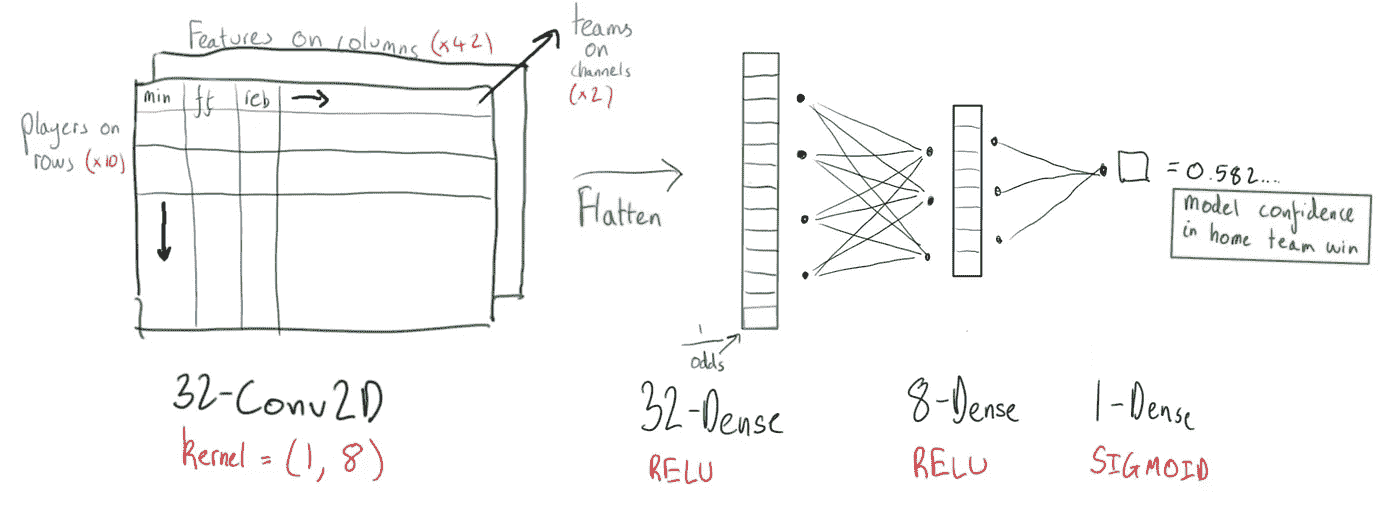 Features on columns (x42)
teams
on
channels
(x2)
min ft reb
Players on
rows (x10)
Flatten
= 0.582....
model confidence
in home team win
1
odds
32-Conv2D
kernel = (1, 8)
32-Dense
RELU
8-Dense
RELU
1-Dense
SIGMOID